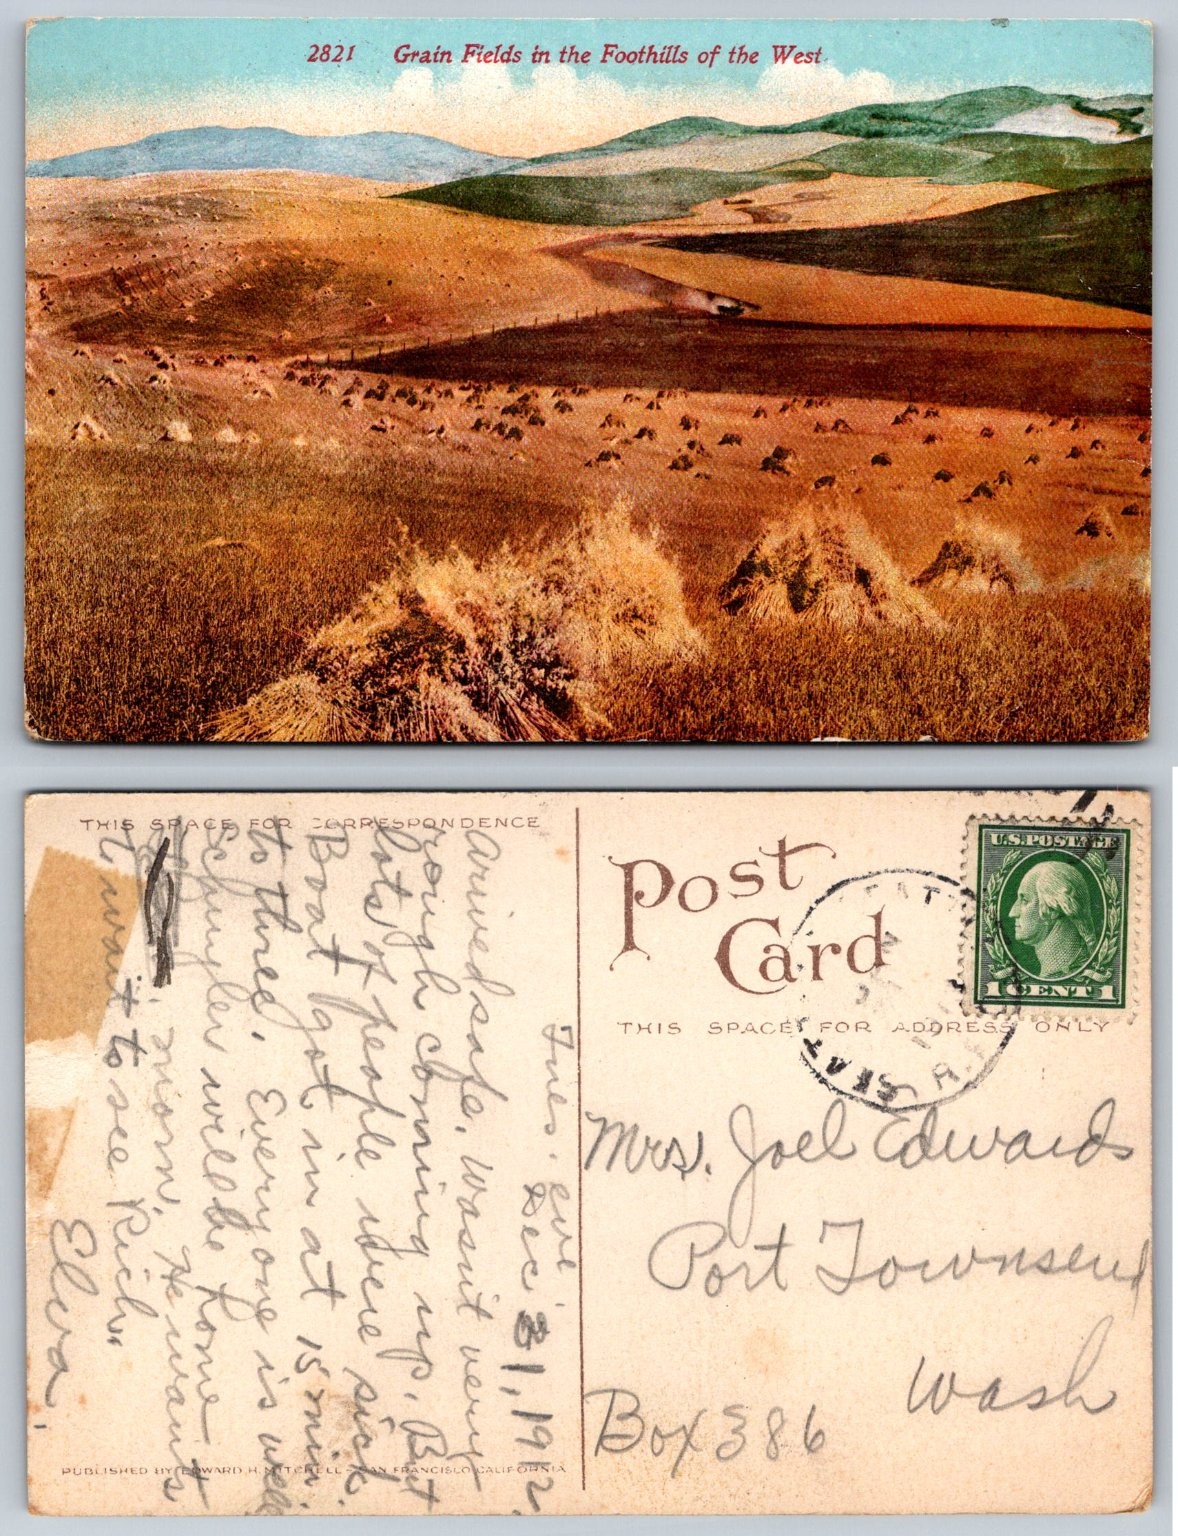 2821 Grain Fields in the Foothills of the West
THIS SPACE FOR CORRESPONDENCE
Tues. eve
Dec. 31, 1912.
Arrived safe. Wasn't very
rough coming up. But
lots of people were sick.
Boat got in at 15 min.
to three. Everyone is well
Schuyler will be home
morn. He wants
to wait to see Rich.
Elva.
PUBLISHED BY EDWARD H. MITCHELL - SAN FRANCISCO, CALIFORNIA
Post Card
U.S. POSTAGE
1 CENT 1
THIS SPACE FOR ADDRESS ONLY
Mrs. Joel Edwards
Port Townsend
Wash
Box 386